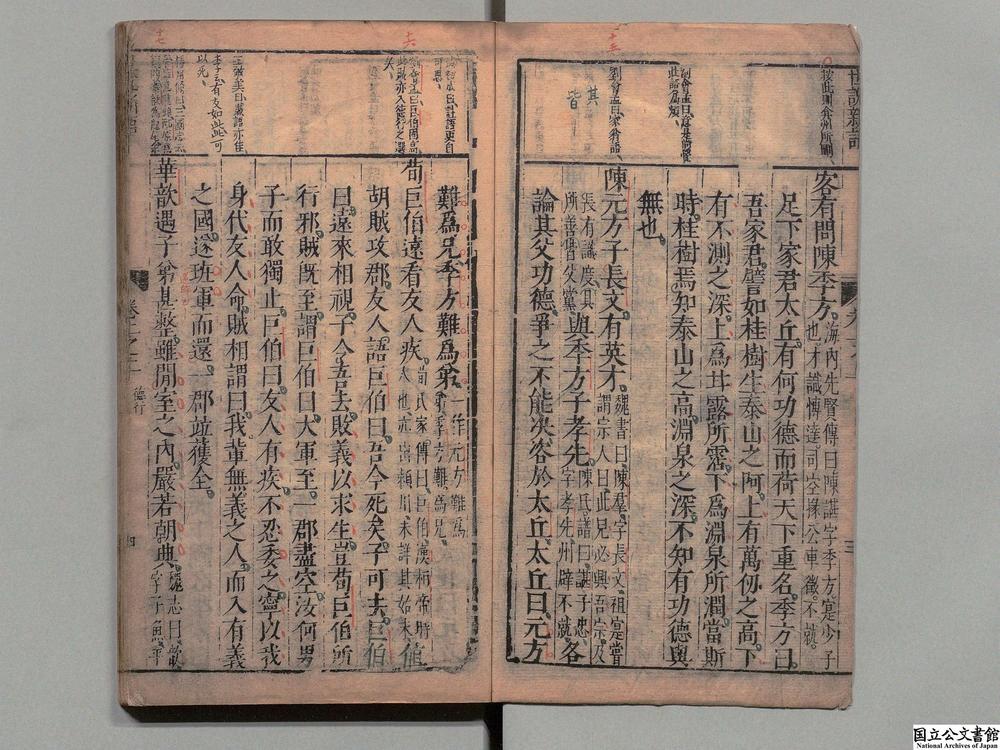 世說新語
客有問陳季方海內先賢傳曰陳諶字季方寔少子
也才識博達司空掾公車徵不就
足下家君太丘有何功德而荷天下重名季方曰
吾家君譬如桂樹生泰山之阿上有萬仞之高下
有不測之深上爲甘露所霑下爲淵泉所潤當斯
時桂樹焉知泰山之高淵泉之深不知有功德與
無也
陳元方子長文有英才魏書曰陳群字長文祖寔嘗
謂宗人曰此兒必興吾宗及
長有識度其
所善皆父黨與季方子孝先陳氏譜曰諶子忠
字孝先州辟不就各
論其父功德爭之不能決咨於太丘太丘曰元方
難爲兄季方難爲弟一作元方難爲
弟季方難爲兄
荀巨伯遠看友人疾荀氏家傳曰巨伯漢桓帝時
人也亦出潁川未詳其始末值
胡賊攻郡友人語巨伯曰吾今死矣子可去巨伯
曰遠來相視子令吾去敗義以求生豈荀巨伯所
行邪賊既至謂巨伯曰大軍至一郡盡空汝何男
子而敢獨止巨伯曰友人有疾不忍委之寧以我
身代友人命賊相謂曰我輩無義之人而入有義
之國遂班軍而還一郡竝獲全
華歆遇子弟甚整雖閒室之內嚴若朝典魏志曰歆
字子魚平
卷之一
德行
四
國立公文書館
National Archives of Japan